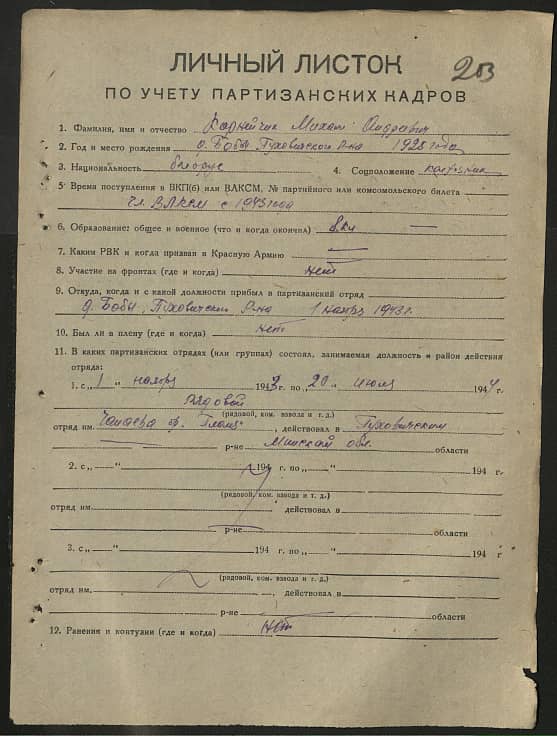 203
ЛИЧНЫЙ ЛИСТОК
ПО УЧЕТУ ПАРТИЗАНСКИХ КАДРОВ
1. Фамилия, имя и отчество Михаил Андреевич
2. Год и место рождения д. Бобы, Пуховичский р-на 1925 года
3. Национальность белорус 4. Соцположение
5. Время поступления в ВКП(б) или ВЛКСМ, № партийного или комсомольского билета
Чл. ВЛКСМ с 1943 года
6. Образование: общее и военное (что и когда окончил) 8 кл —
7. Каким РВК и когда призван в Красную Армию —
8. Участие на фронтах (где и когда) нет
9. Откуда, когда и с какой должности прибыл в партизанский отряд
д. Бобы, Пуховичский р-на 1 ноября 1943 г.
10. Был ли в плену (где и когда) нет
11. В каких партизанских отрядах (или группах) состоял, занимаемая должность и район действия
отряда:
1. с „ 1 “ ноября 1943 г. по „ 20 “ июля 1944 г.
рядовой
(рядовой, ком. взвода и т. д.)
отряд им. Чапаева , действовал в Пуховичском
р-не Минской обл. области
2. с „ “ 194 г. по „ “ 194 г.
(рядовой, ком. взвода и т. д.)
отряд им. действовал в
р-не области
3. с „ “ 194 г. по „ “ 194 г
(рядовой, ком. взвода и т. д.)
отряд им. , действовал в
р-не области
12. Ранения и контузии (где и когда) нет